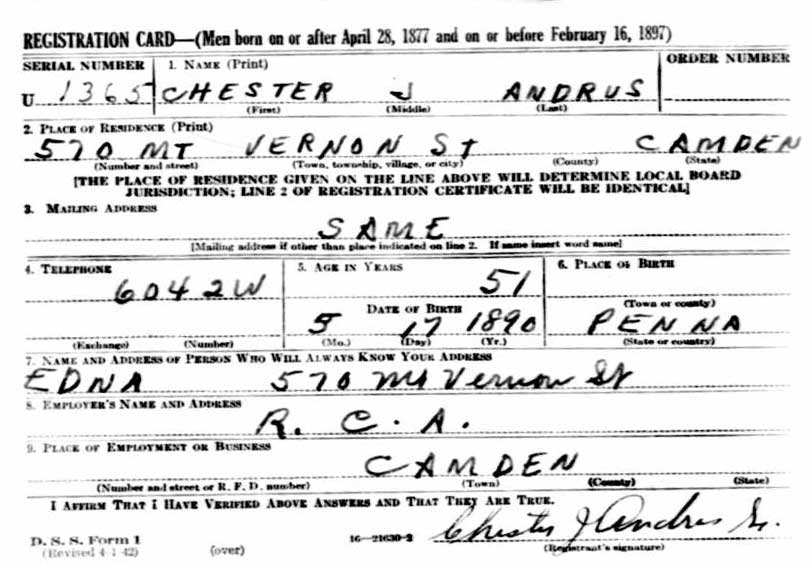 REGISTRATION CARD—(Men born on or after April 28, 1877 and on or before February 16, 1897)
SERIAL NUMBER 1. NAME (Print) ORDER NUMBER
U 1365 CHESTER J ANDRUS
(First) (Middle) (Last)
2. PLACE OF RESIDENCE (Print)
570 MT VERNON ST CAMDEN
(Number and street) (Town, township, village, or city) (County) (State)
[THE PLACE OF RESIDENCE GIVEN ON THE LINE ABOVE WILL DETERMINE LOCAL BOARD
JURISDICTION; LINE 2 OF REGISTRATION CERTIFICATE WILL BE IDENTICAL]
3. MAILING ADDRESS
SAME
[Mailing address if other than place indicated on line 2. If same insert word same]
4. TELEPHONE 5. AGE IN YEARS 6. PLACE OF BIRTH
6042W 51
(Town or county)
DATE OF BIRTH
5 17 1890 PENNA
(Exchange) (Number) (Mo.) (Day) (Yr.) (State or country)
7. NAME AND ADDRESS OF PERSON WHO WILL ALWAYS KNOW YOUR ADDRESS
EDNA 570 Mt Vernon St
8. EMPLOYER'S NAME AND ADDRESS
R. C. A.
9. PLACE OF EMPLOYMENT OR BUSINESS
CAMDEN
(Number and street or R. F. D. number) (Town) (County) (State)
I AFFIRM THAT I HAVE VERIFIED ABOVE ANSWERS AND THAT THEY ARE TRUE.
Chester J Andrus Sr.
D. S. S. Form 1 16—21630-2
(Revised 4-1-42) (over) (Registrant's signature)